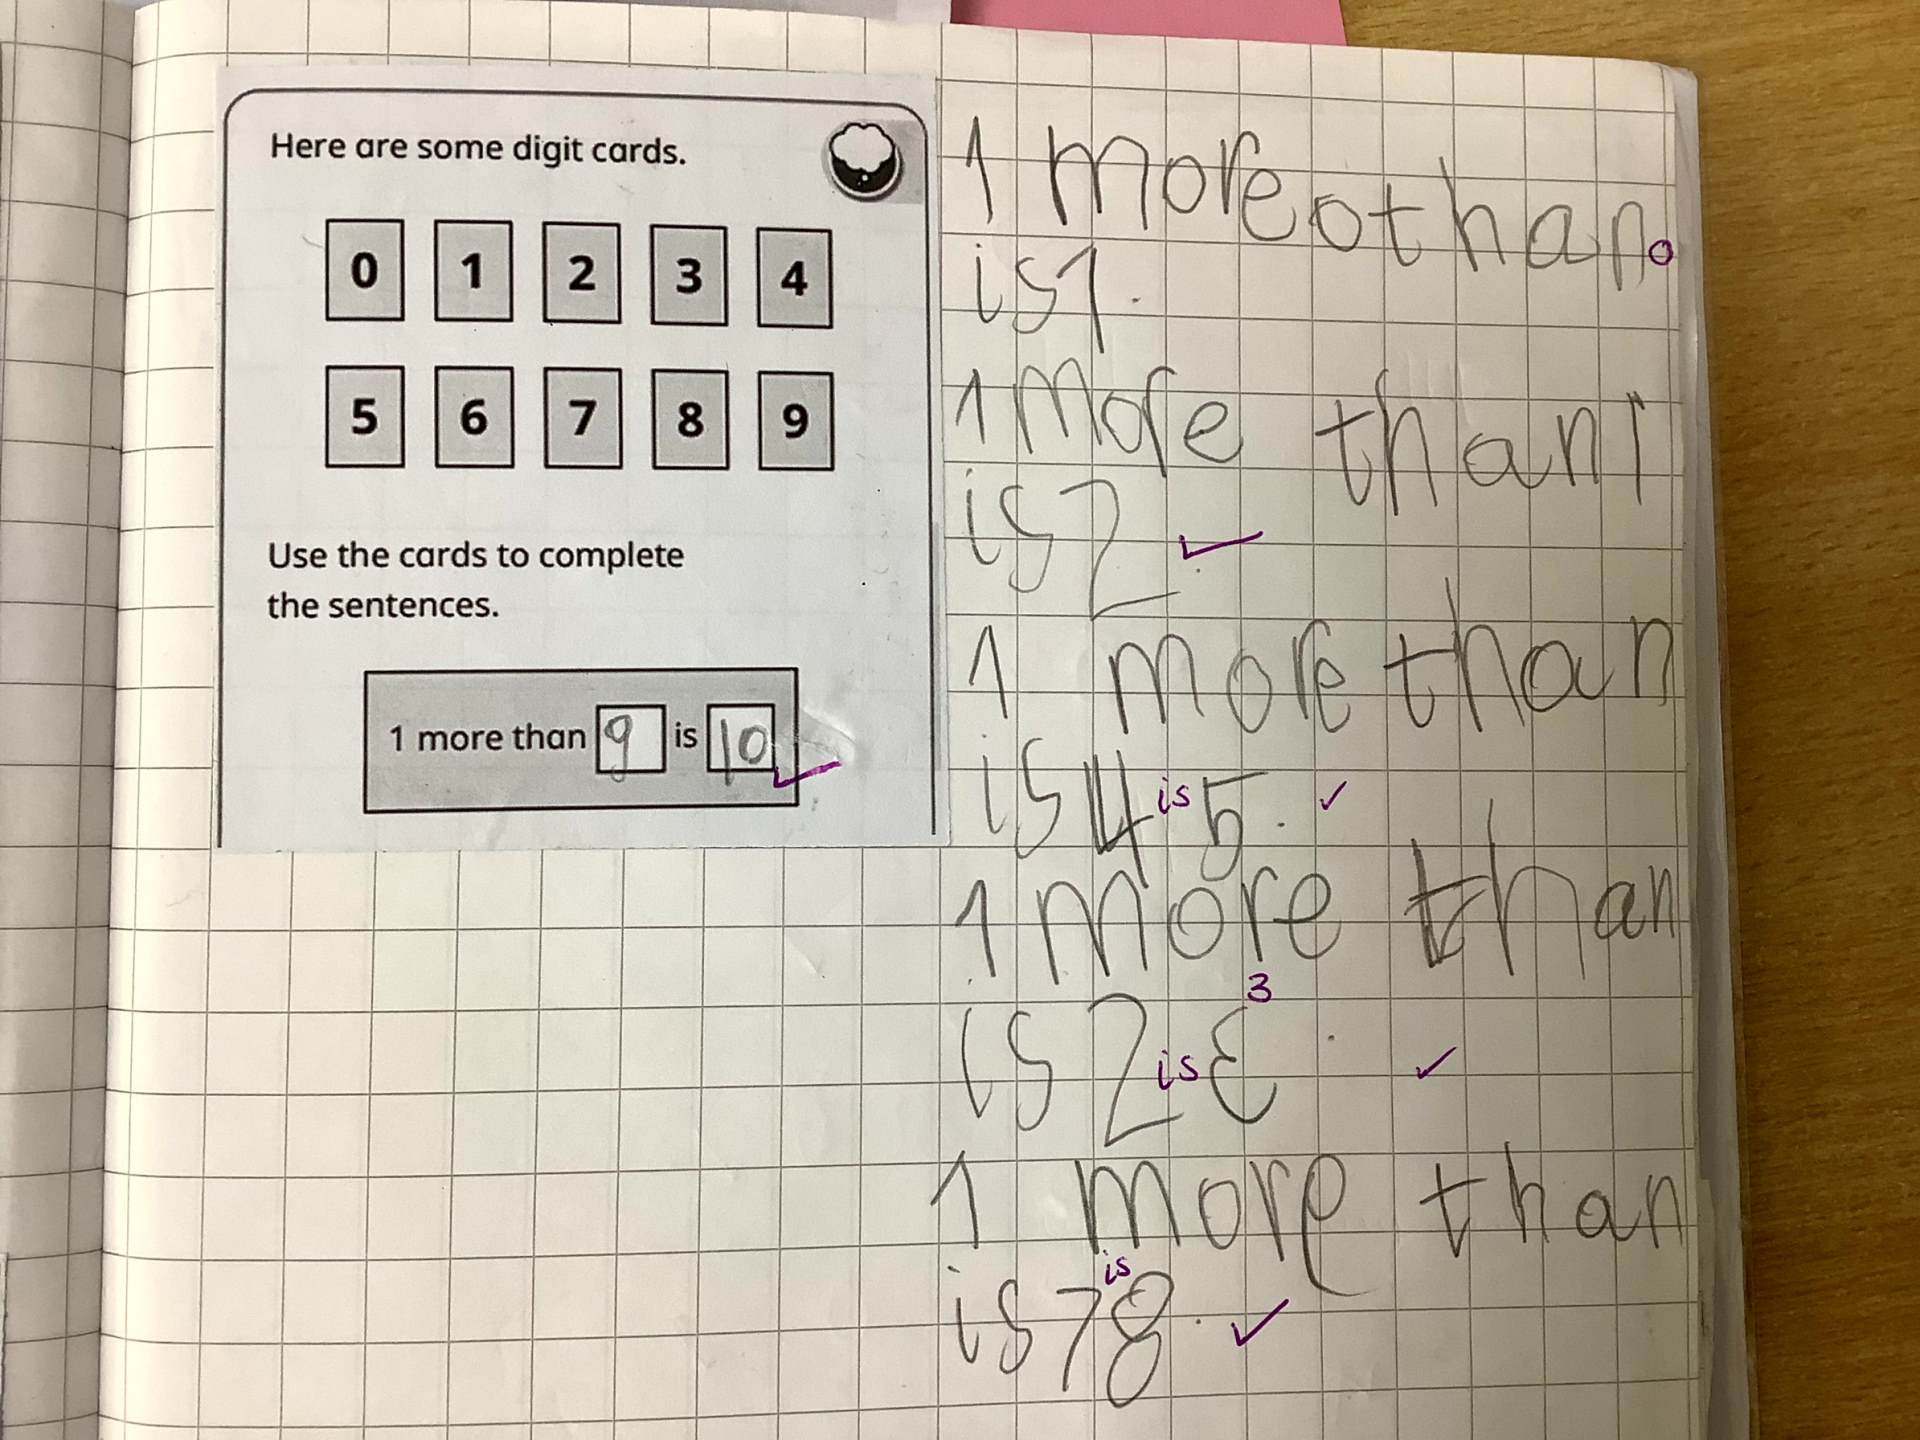 Here are some digit cards.
0 1 2 3 4
5 6 7 8 9
Use the cards to complete
the sentences.
1 more than 9 is 10
1 more o than 0
is 1.
1 more than 1
is 2
1 more than
is 4 is 5.
1 more than
3
is 2 is Ɛ.
1 more than
is
is 7 8.